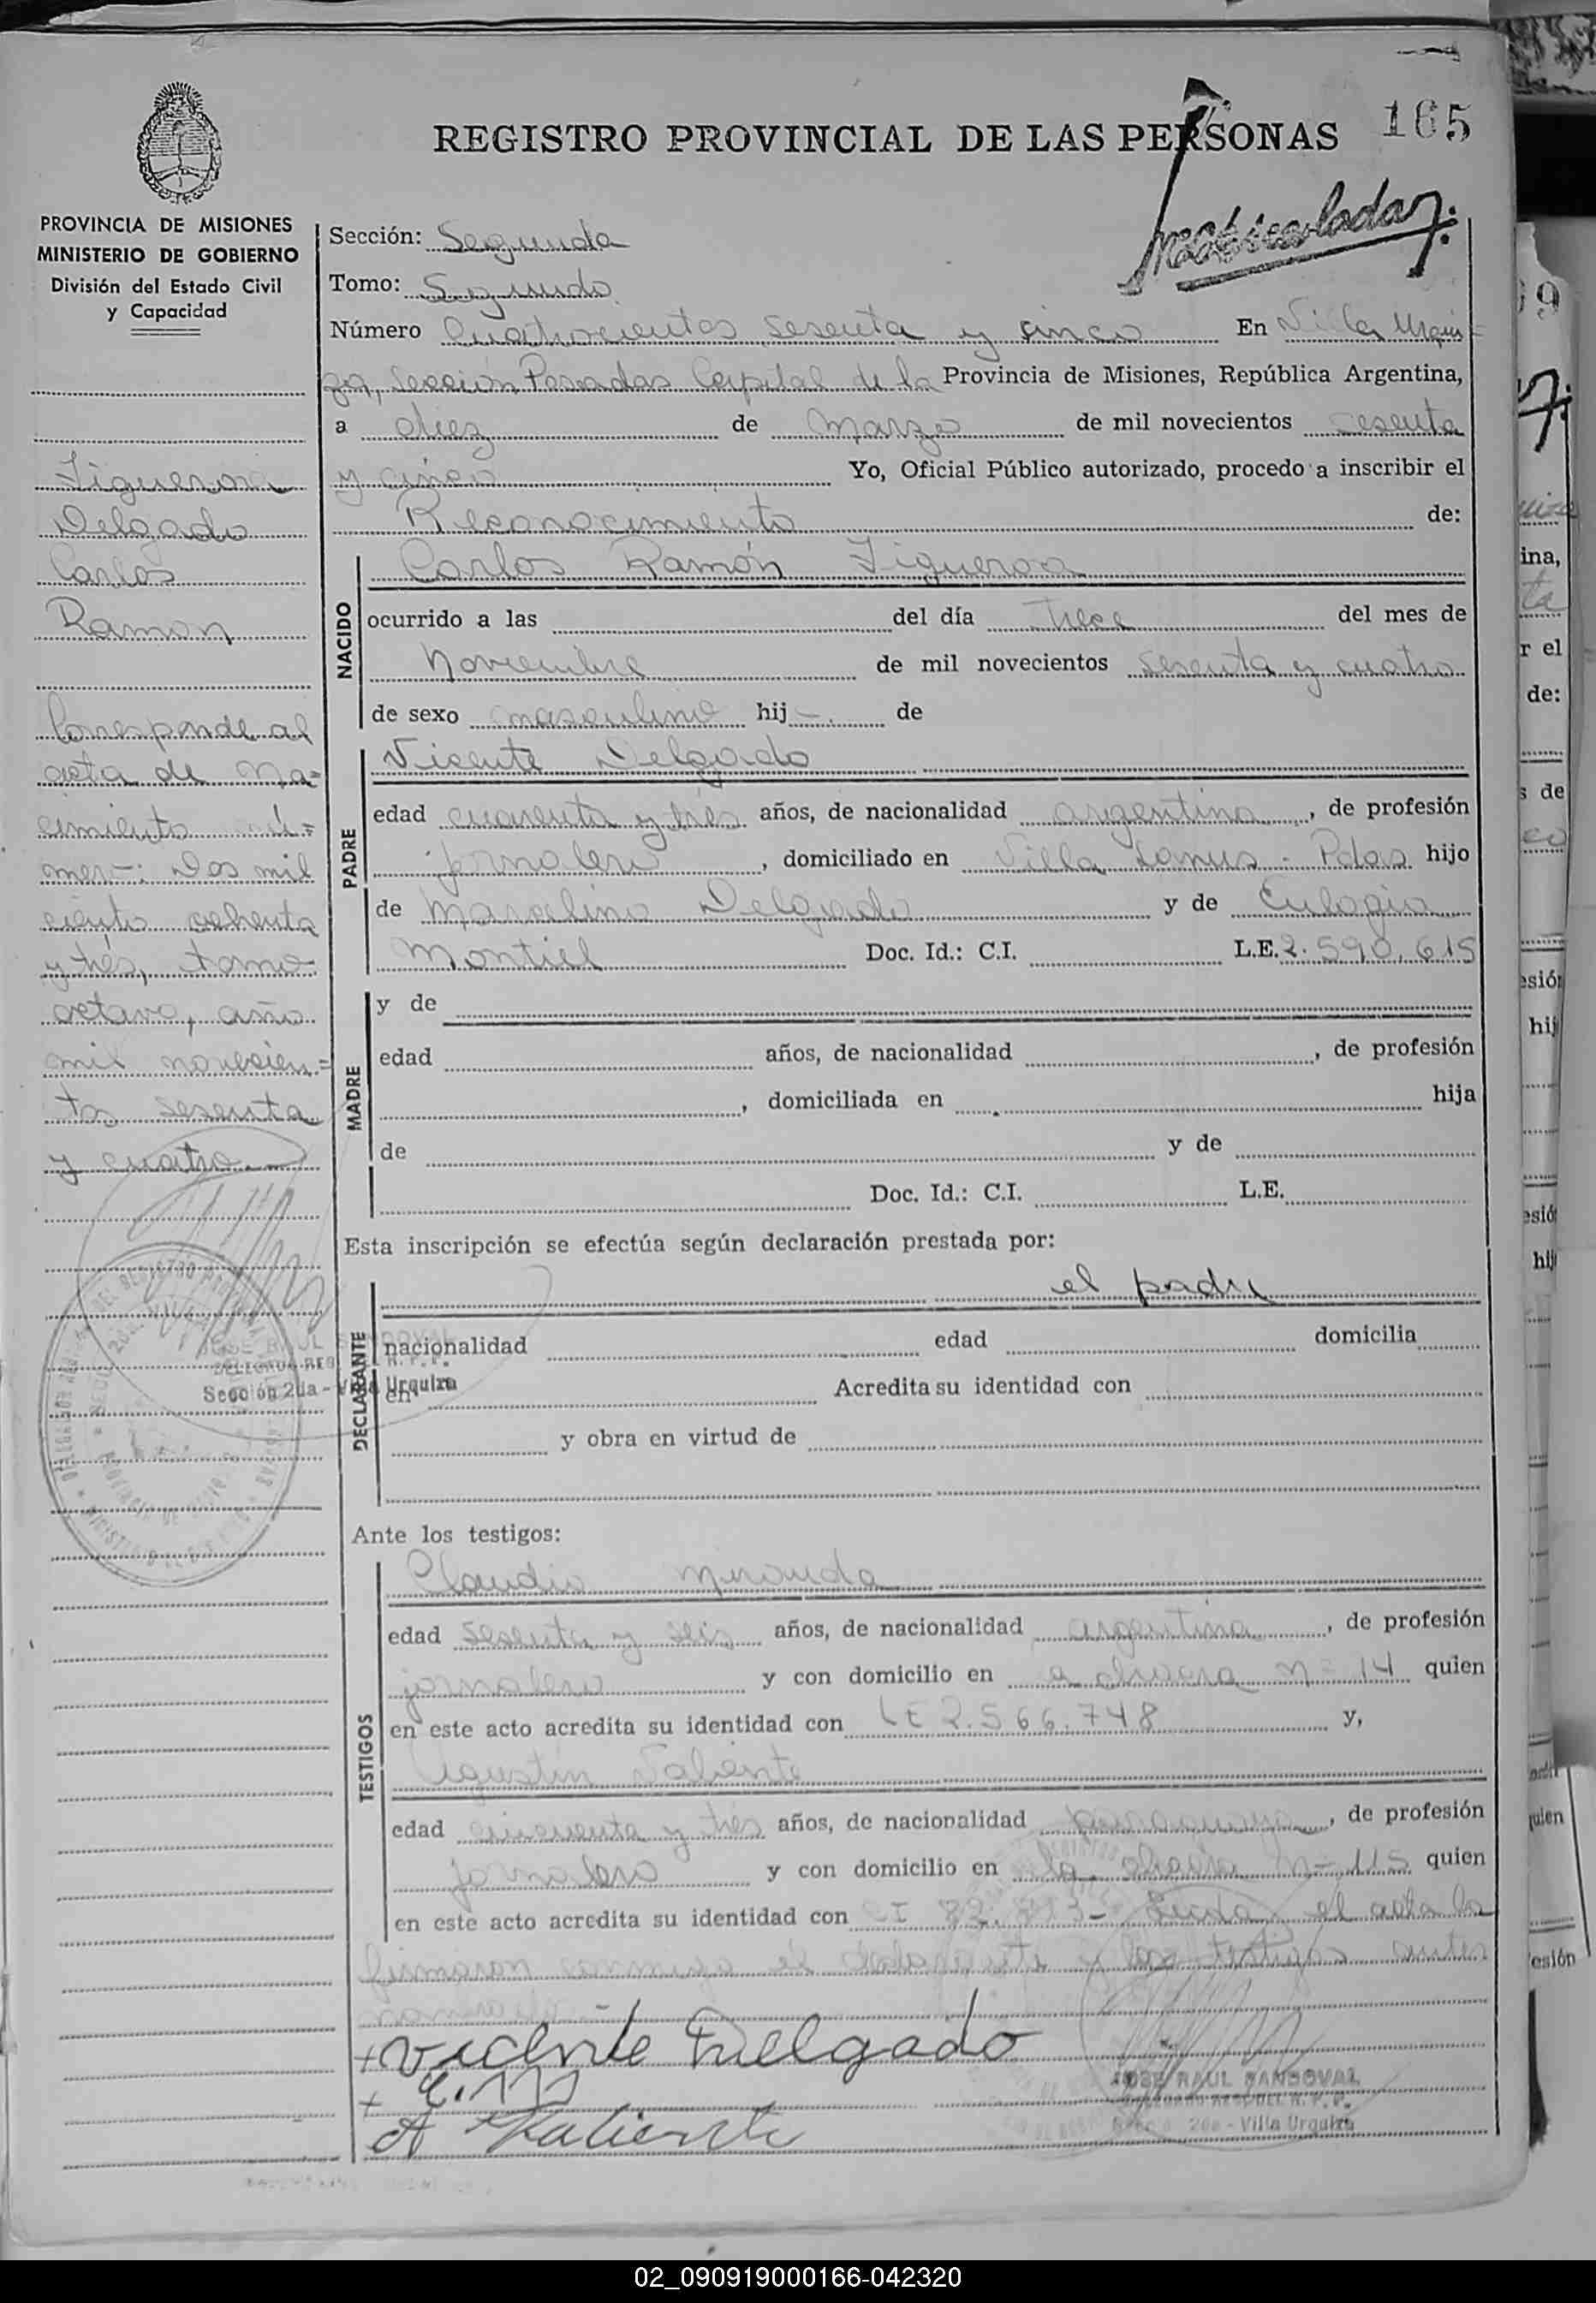 165
REGISTRO PROVINCIAL DE LAS PERSONAS
Matriculado
PROVINCIA DE MISIONES
MINISTERIO DE GOBIERNO
División del Estado Civil
y Capacidad
Figueroa
Delgado
Carlos
Ramon
Corresponde al
acta de Na=
cimiento nú=
mero: Dos mil
ciento ochenta
y tres, tomo
octavo, año
mil novecien=
tos sesenta
y cuatro.
Sección: Segunda
Tomo: Segundo
Número Cuatrocientos sesenta y cinco En Villa Urqui=
za, Sección Posadas Capital de la Provincia de Misiones, República Argentina,
a diez de Marzo de mil novecientos sesenta
y cinco Yo, Oficial Público autorizado, procedo a inscribir el
Reconocimiento de:
NACIDO
Carlos Ramón Figueroa
ocurrido a las del día trece del mes de
Noviembre de mil novecientos sesenta y cuatro
de sexo masculino hij de
PADRE
Vicente Delgado
edad cuarenta y tres años, de nacionalidad argentina, de profesión
jornalero, domiciliado en Villa Lanus - Pdas hijo
de Marcelino Delgado y de Eulogia
Montiel Doc. Id.: C.I. L.E. 2.590.615
MADRE
y de
edad años, de nacionalidad , de profesión
, domiciliada en hija
de y de
Doc. Id.: C.I. L.E.
Esta inscripción se efectúa según declaración prestada por:
DECLARANTE
el padre
nacionalidad edad domicilia
en Acredita su identidad con
y obra en virtud de
JOSE RAUL SANDOVAL
DELEGADO REG R. P. P.
Sección 2da - Villa Urquiza
Ante los testigos:
TESTIGOS
Claudio Miranda
edad sesenta y seis años, de nacionalidad argentina, de profesión
jornalero y con domicilio en a chacra Nº 14 quien
en este acto acredita su identidad con LE 2.566.748 y,
Agustín Valiente
edad cincuenta y tres años, de nacionalidad paraguaya, de profesión
jornalero y con domicilio en la chacra Nº 115 quien
en este acto acredita su identidad con CI Leida el acta la
firmaron conmigo el declarante y los testigos antes
nombrado
Vicente Delgado
C. M
A Valiente
JOSE RAUL SANDOVAL
DELEGADO REG DEL R. P. P.
Secc 2da - Villa Urquiza
02_090919000166-042320